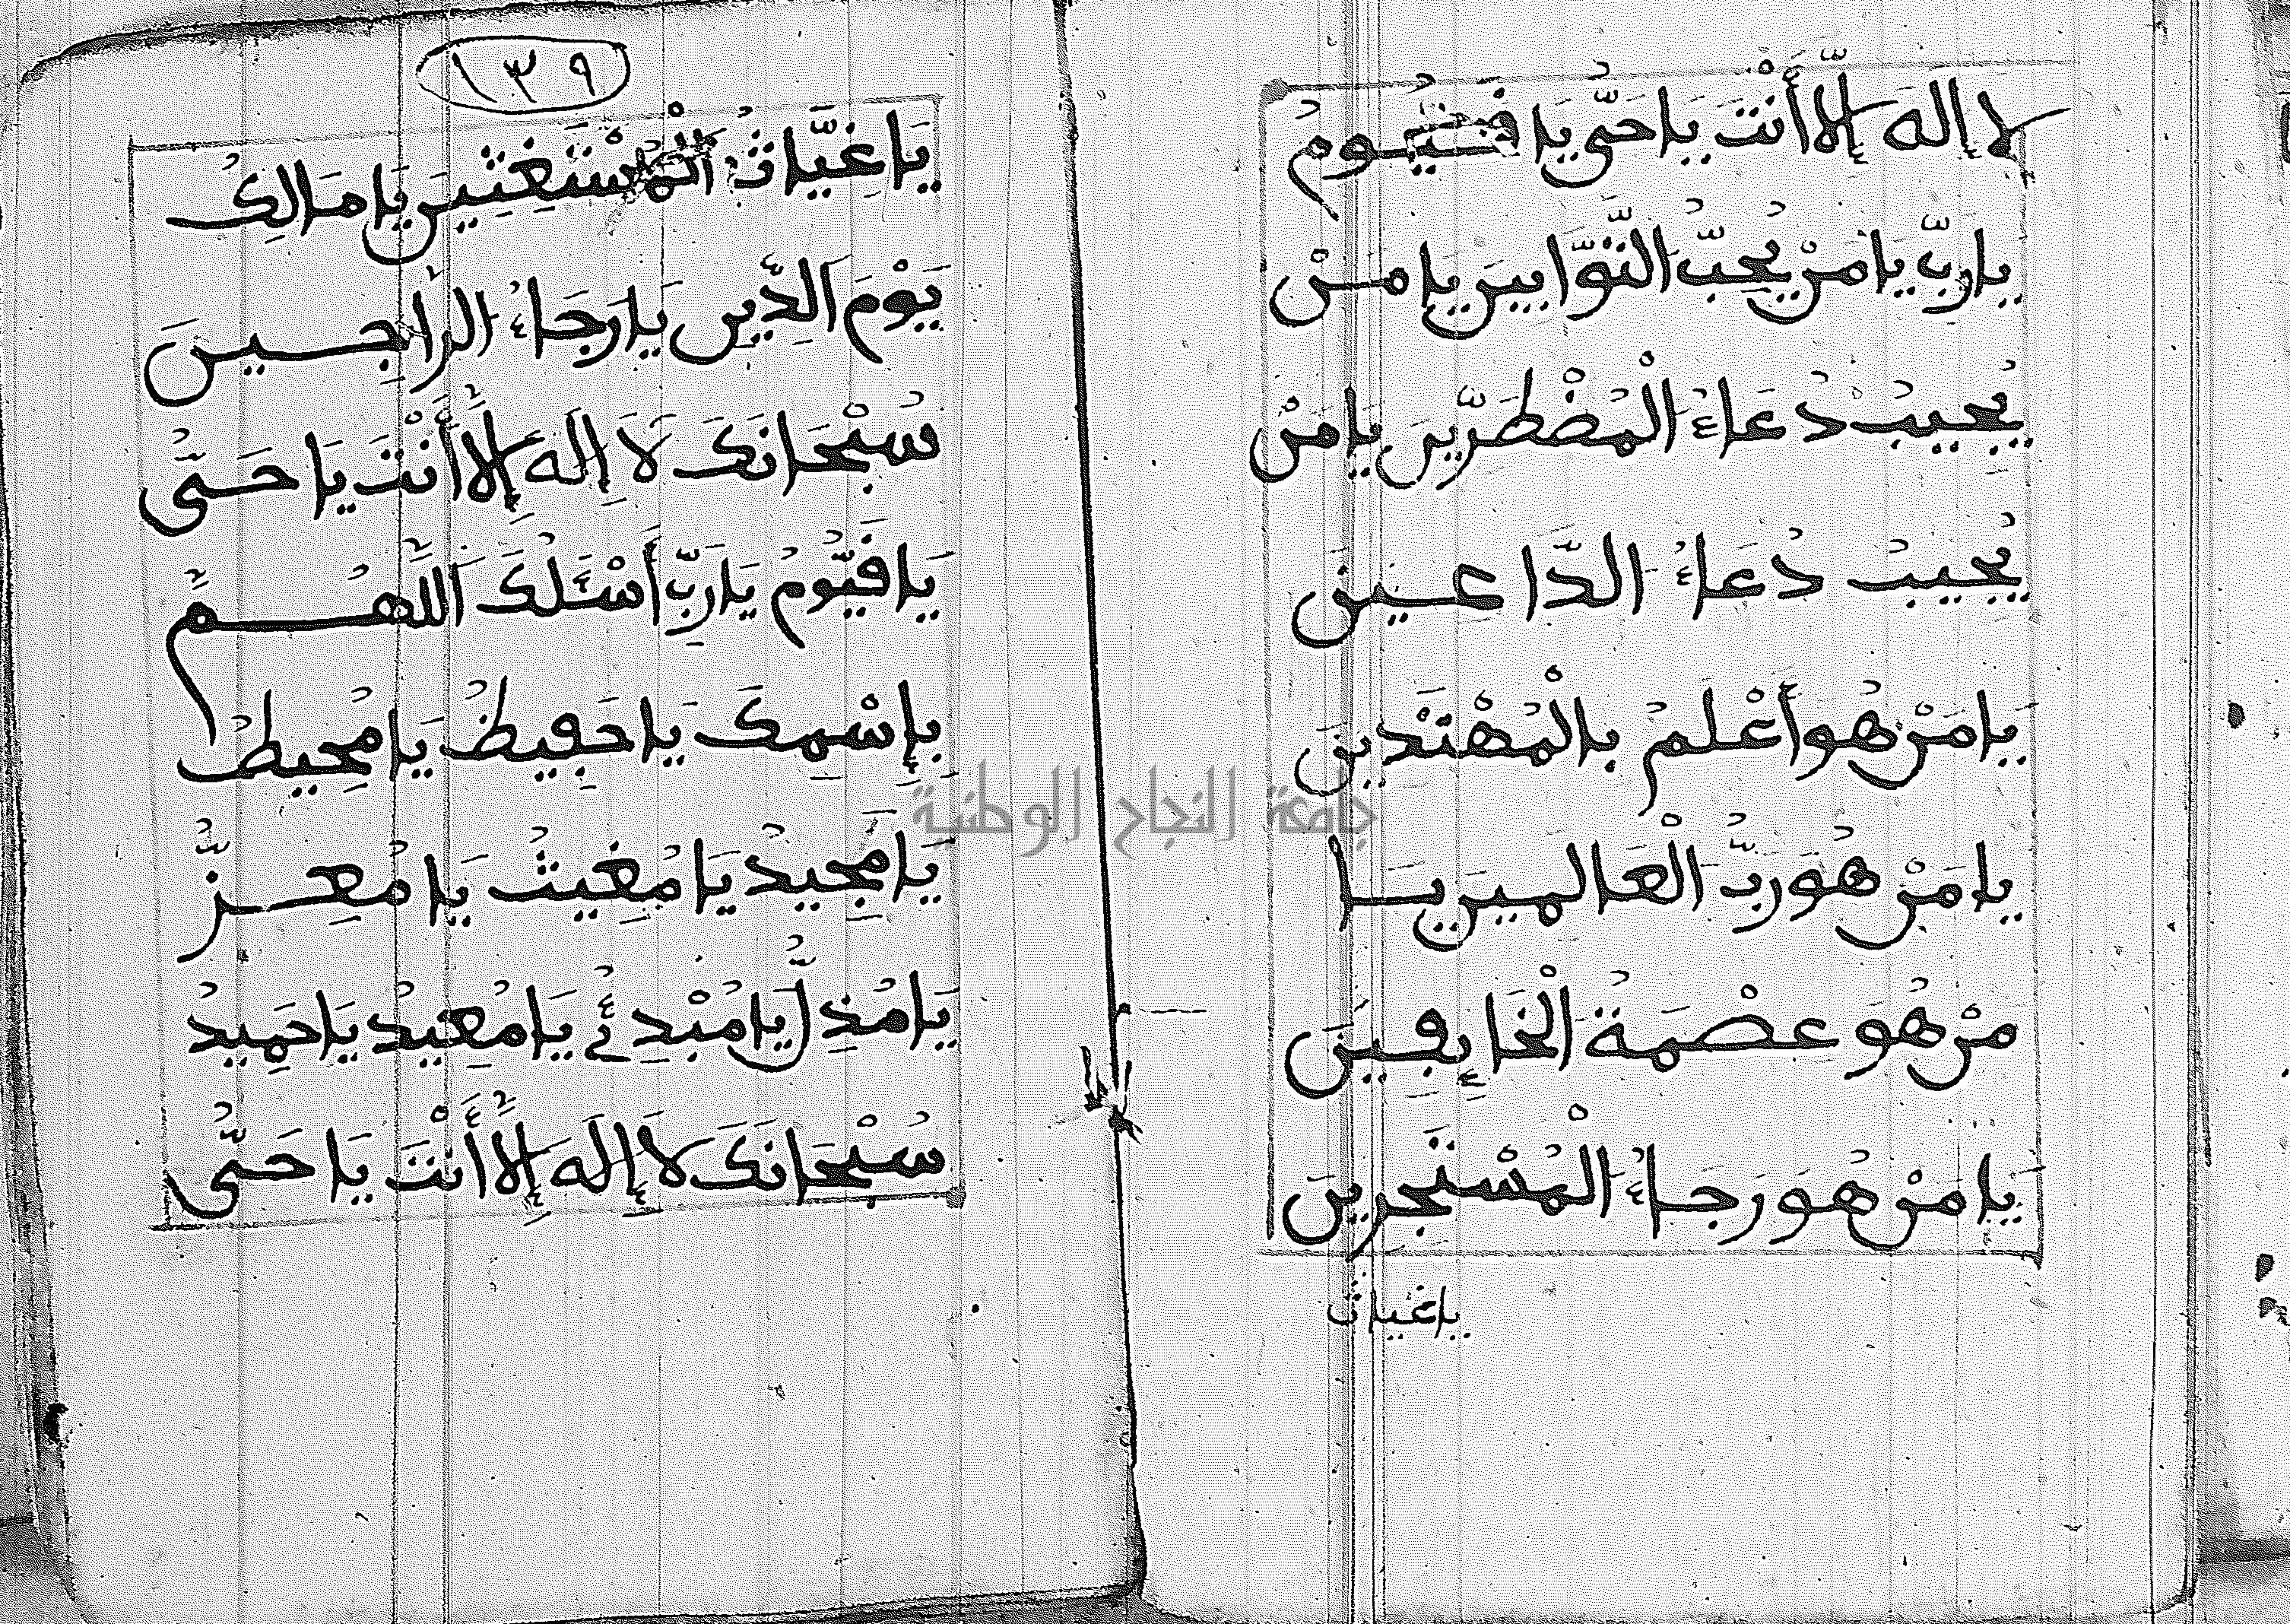 لا إله إلّا أنْتَ يَا حَىُّ يَا قَيُّومُ
يا ربِّ يا مَنْ يُحِبُّ التَّوَّابينَ يا مَنْ
يُجيبُ دُعَاءَ الْمُضْطَرِّينَ يا مَنْ
يُجيبُ دُعَاءُ الدَّاعين
يَا مَنْ هُو أَعْلمُ بِالْمُهْتَدينَ
يا مَنْ هُوَ ربُّ الْعَالمينَ يَا
مَنْ هُوَ عِصْمَةُ الْخَائِفِينَ
يَا مَنْ هُوَ رَجَاءُ الْمُسْتَجِرينَ
يا غياث
١٣٩
يَا غِيَّاثُ الْمُسْتَغِثِينَ يَا مَالِكُ
يَوْمَ الدِّينِ يَا رَجَاءُ الرَّاجِينَ
سُبْحَانَكَ لَا إِلهَ إِلَّا أَنْتَ يَا حَىُّ
يَا قَيُّومُ يَا رَبِّ أَسْئَلُكَ اللَّهُمَّ
بِإِسْمِكَ يَا حَفِيظُ يَا مُحِيطُ
يَا مَجِيدُ يَا مُغِيثُ يَا مُعِزُّ
يَا مُذِلُّ يَا مُبْدِئُ يَا مُعِيدُ يَا حَمِيدُ
سُبْحَانَكَ لَا إِلَهَ إِلَّا أَنْتَ يَا حَىُّ
جامعة النجاح الوطنية